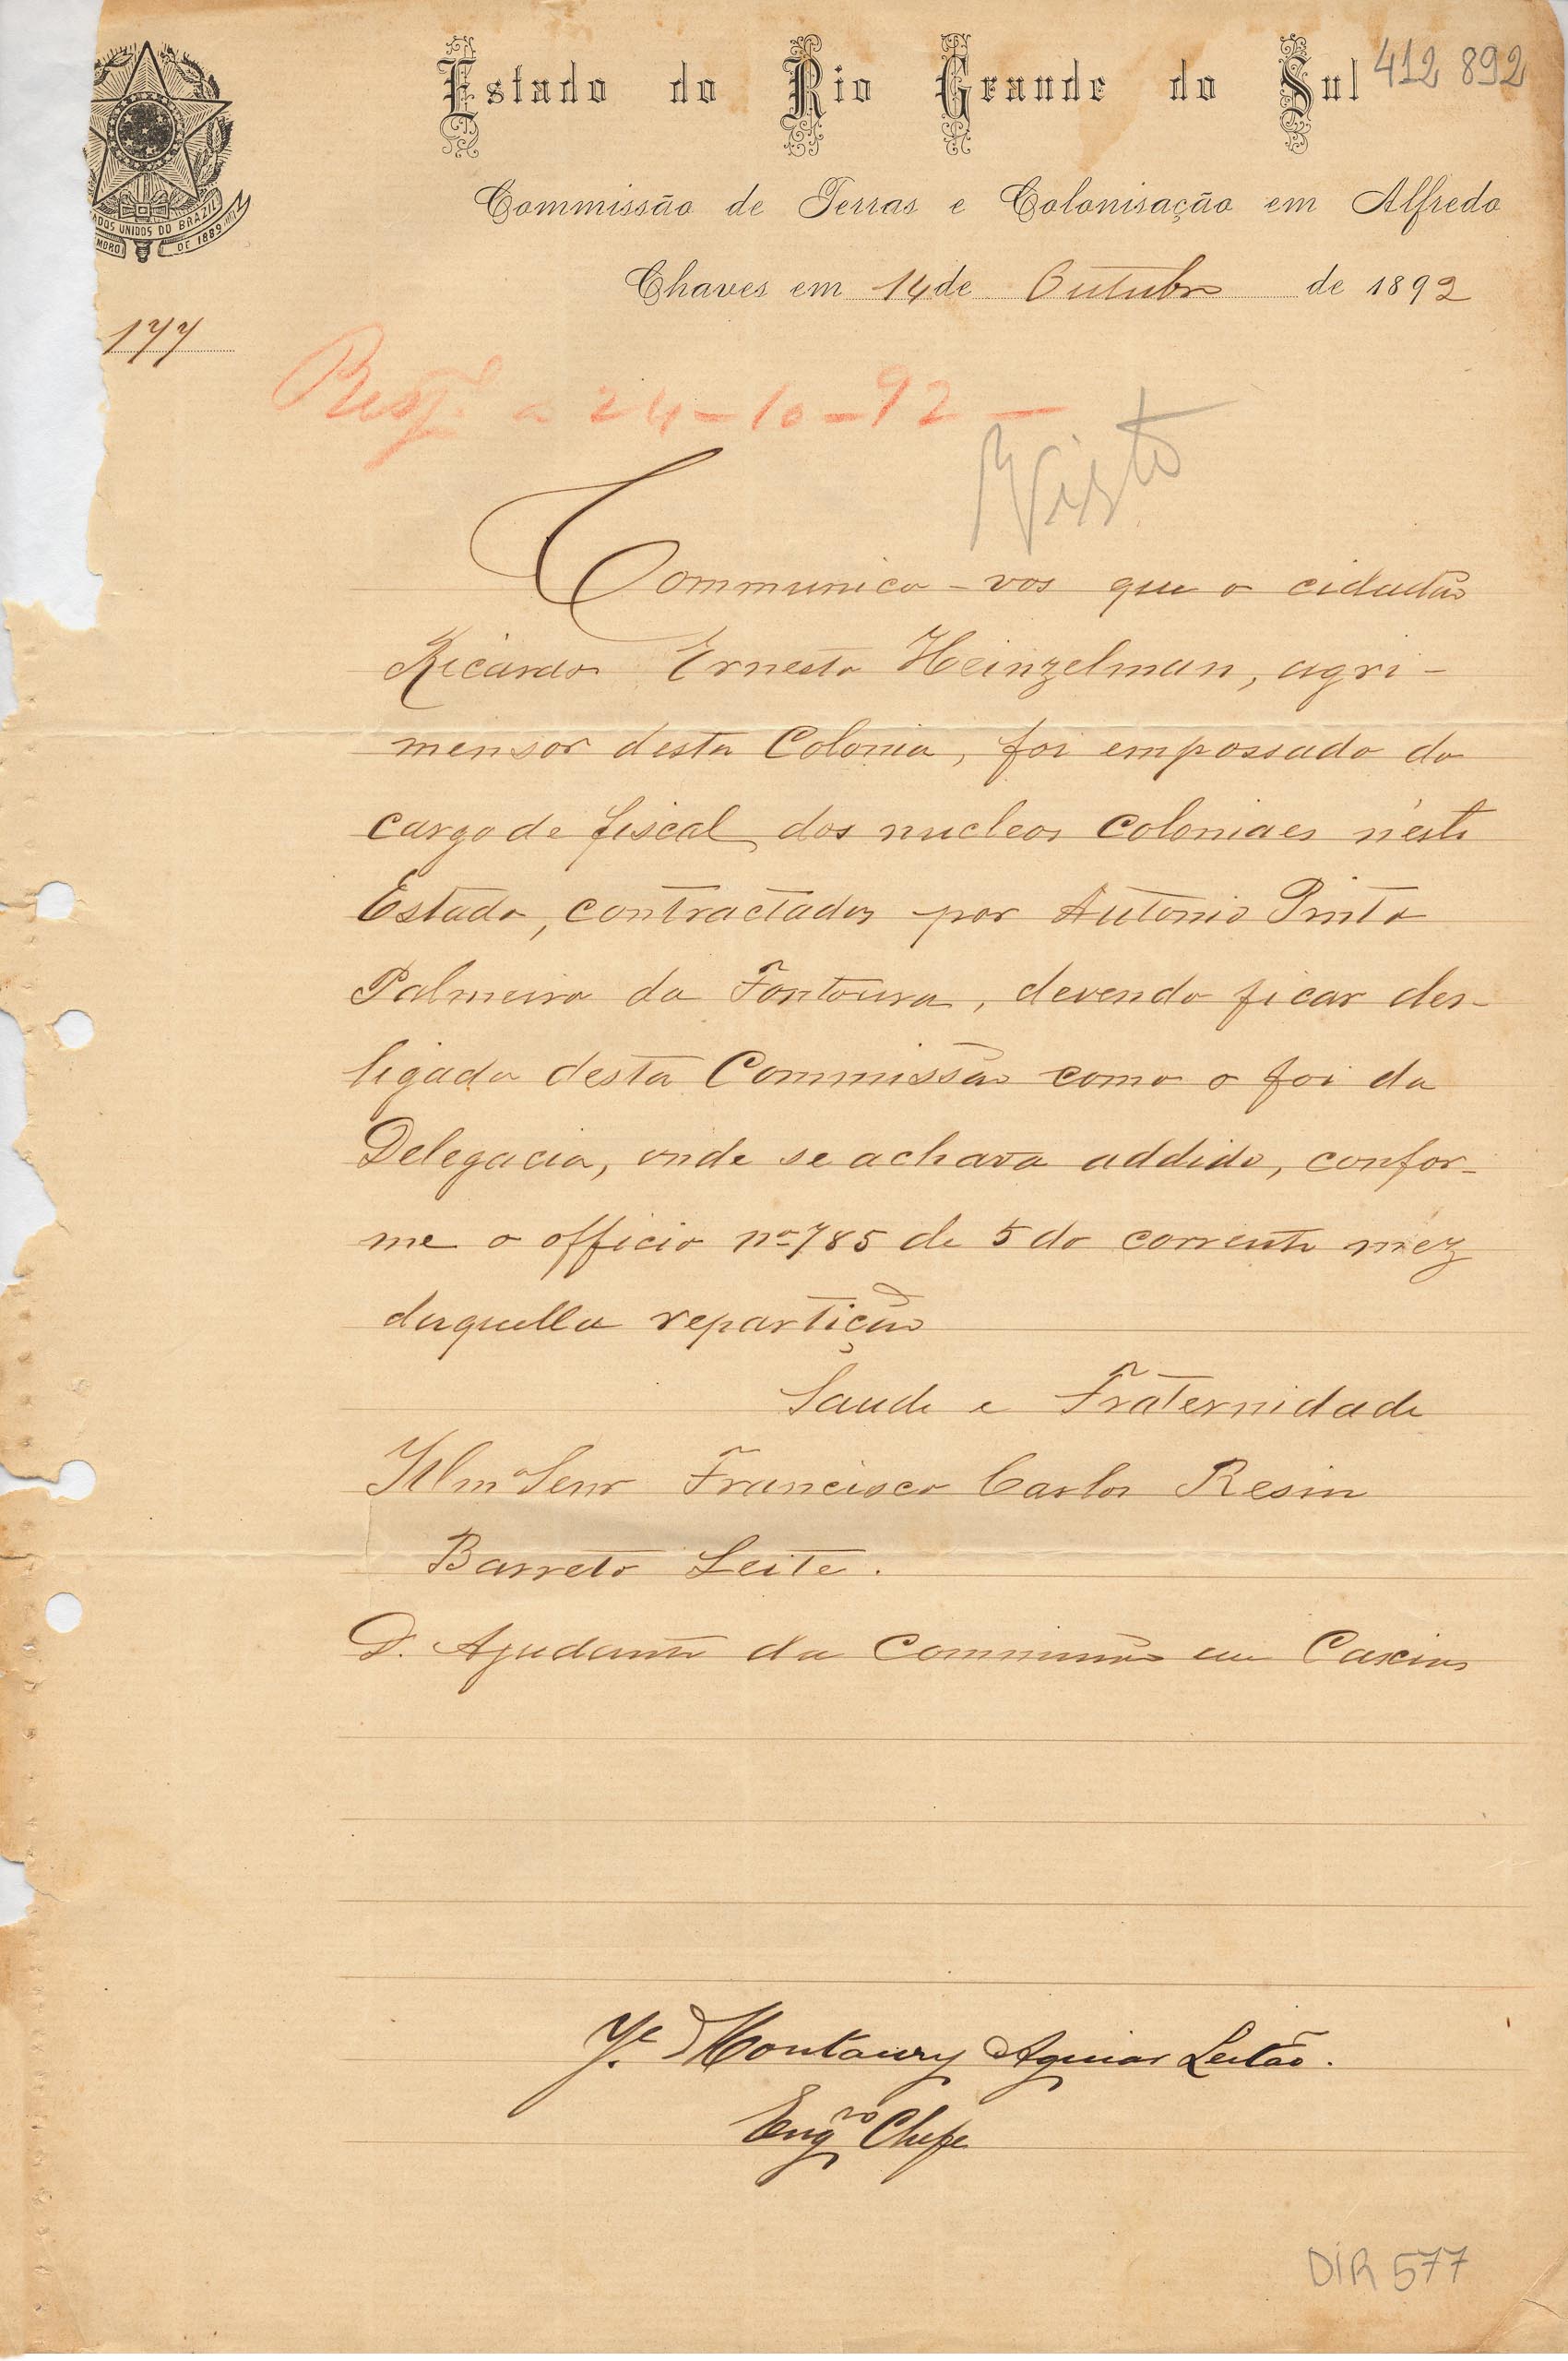 Estado do Rio Grande do Sul 412 892
Commissão de Terras e Colonisação em Alfredo
Chaves em 14 de Outubro de 1892
DOS UNIDOS DO BRAZIL
MBRO DE 1889
177
Resp. a 24-10-92-
Visto
Communico-vos que o cidadão
Ricardo Ernesto Heinzelman, agri-
mensor desta Colonia, foi empossado do
cargo de fiscal dos nucleos coloniaes néste
Estado, contractados por Antonio Pinto
Palmeiro da Fontoura, devendo ficar des-
ligado desta Commissão como o foi da
Delegacia, onde se achava addido, confor-
me o officio nº 785 de 5 do corrente méz
daquella repartição
Saude e Fraternidade
Illmº Senr Francisco Carlos Resin
Barreto Leite.
D. Ajudante da Commissão em Caxias
Jé Montaury Aguiar Leitão.
Engro Chefe
DIR 577